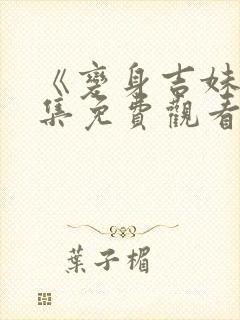 《變身吉妹
集免費觀看
葉子楣